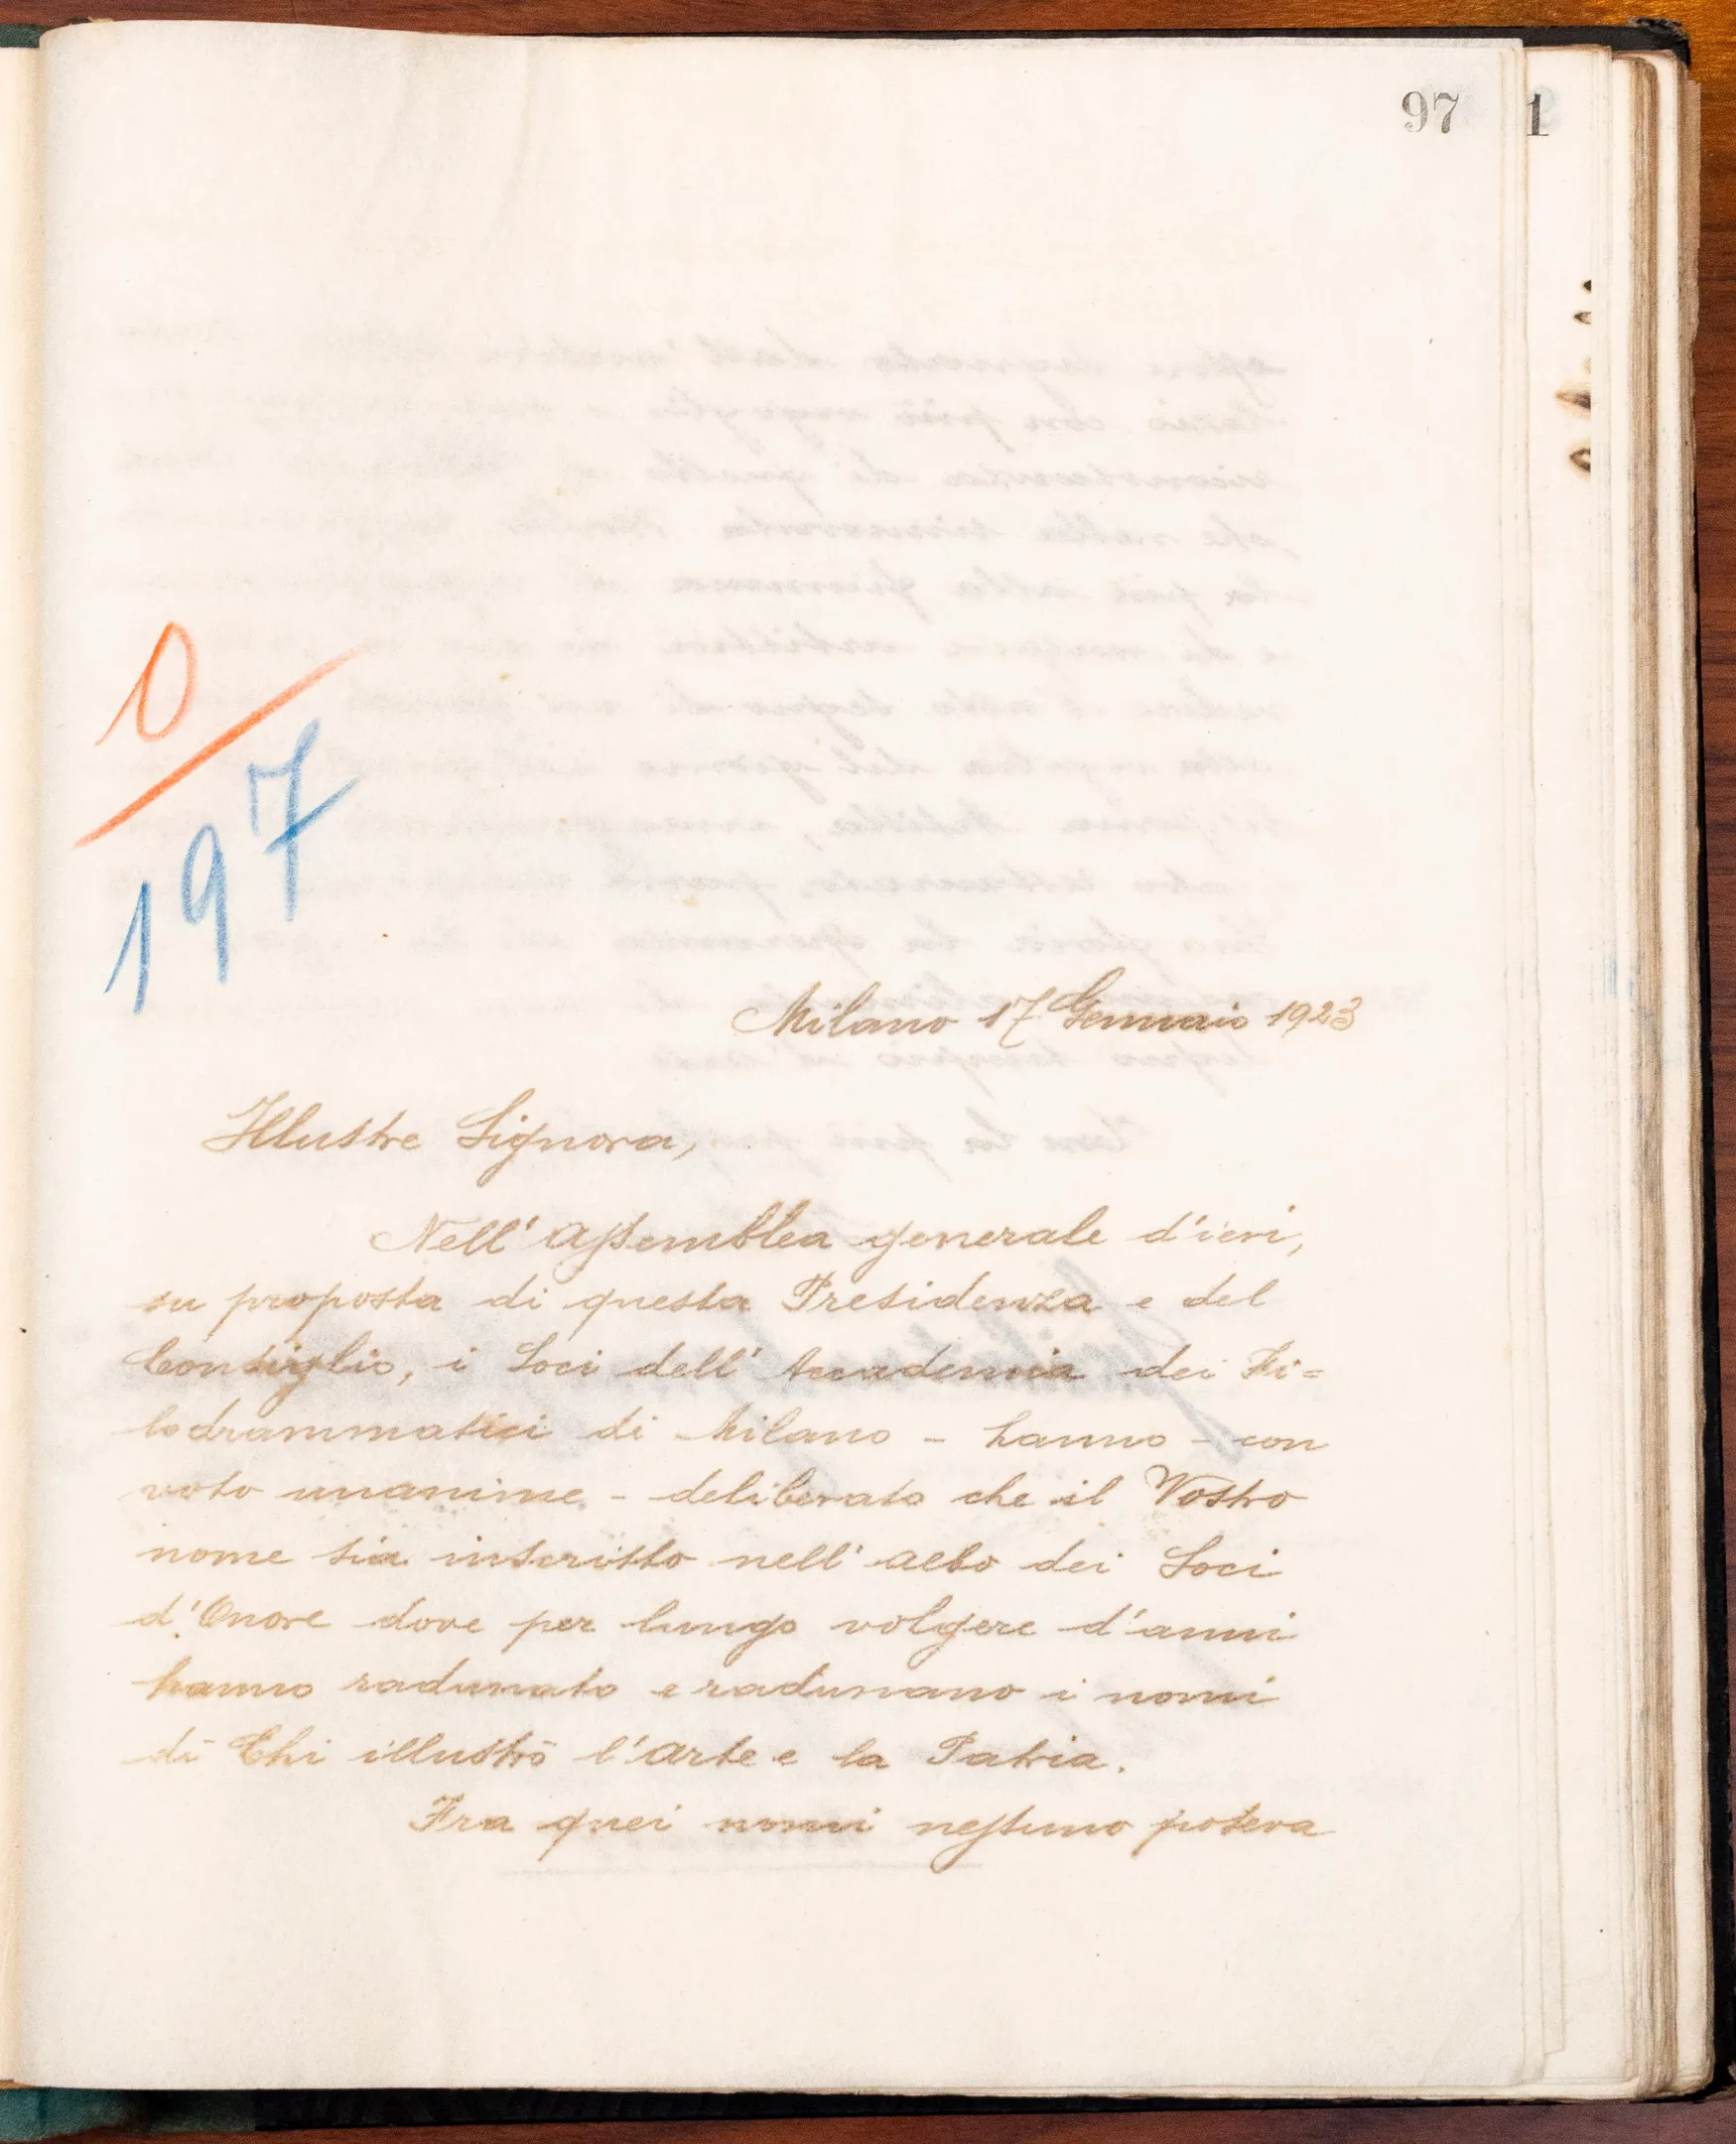 97
1
0
197
Milano 17 Gennaio 1923
Illustre Signora,
Nell' Assemblea generale d'ieri,
su proposta di questa Presidenza e del
Consiglio, i Soci dell' Accademia dei Fi=
lodrammatici di Milano - hanno - con
voto unanime - deliberato che il Vostro
nome sia inscritto nell' albo dei Soci
d'Onore dove per lungo volgere d'anni
hanno radunato e radunano i nomi
di Chi illustrò l'Arte e la Patria.
Fra quei nomi nessuno poteva